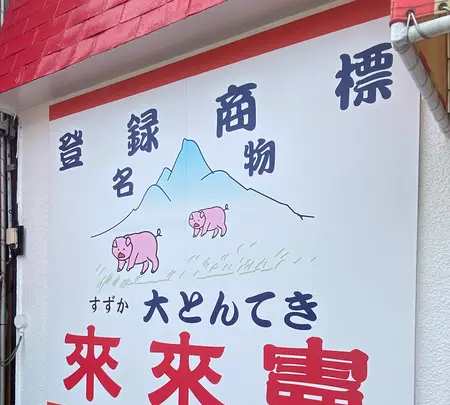 登録商標
名物
すずか 大とんてき
來來憲